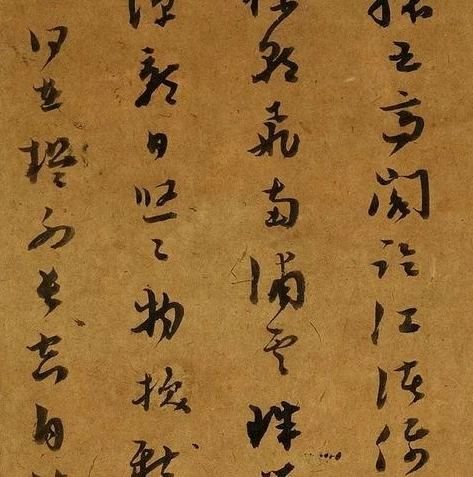 王高閣臨江渚佩
棟朝飛南浦雲珠
潭影日悠々物換
何在檻外長空自